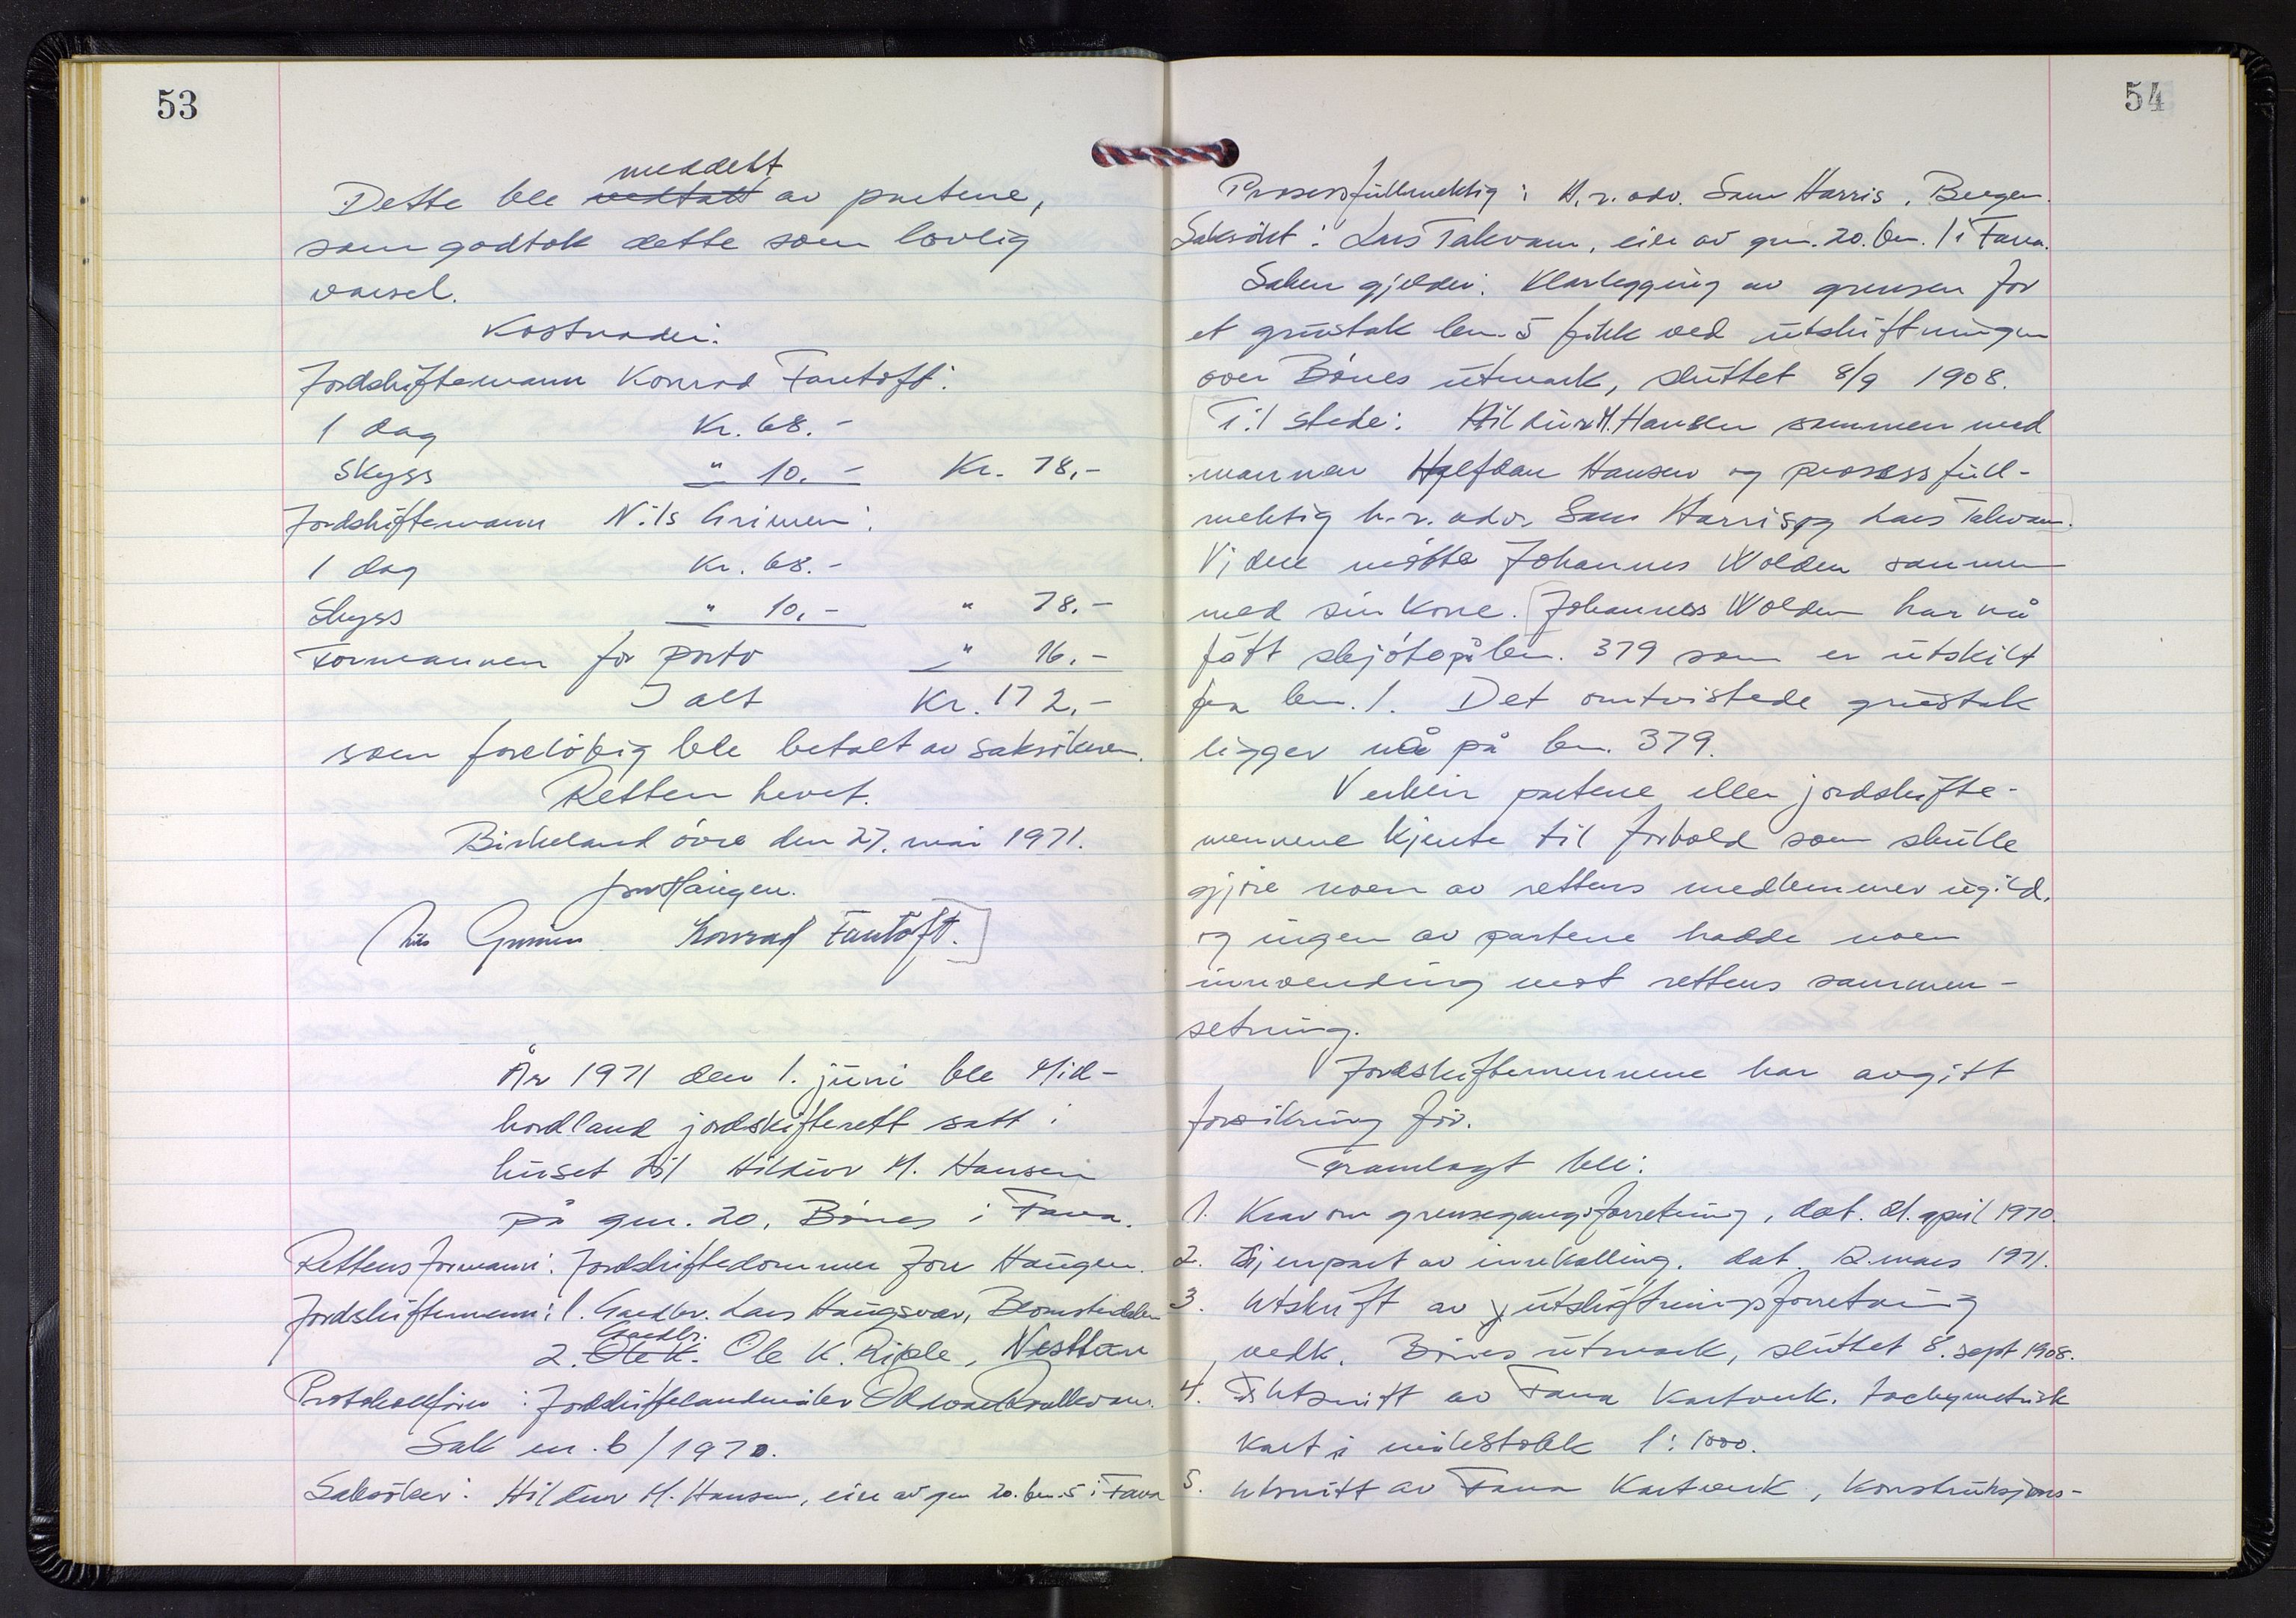 53
meddelt
Dette ble vedtatt av partene,
som godtok dette som lovlig
varsel.
Kostnader:
Jordskiftemann Konrad Fantoft:
1 dag Kr. 68.-
Skyss " 10.- Kr. 78,-
Jordskiftemann Nils Grimen:
1 dag Kr. 68.-
Skyss " 10,- " 78.-
Formannen for porto " 16.-
I alt Kr. 172,-
som foreløbig ble betalt av saksökeren.
Retten hevet.
Birkeland övre den 27. mai 1971.
Jon Haugen.
Nils Grimen Konrad Fantoft.
År 1971 den 1. juni ble Mid-
hordland jordskifterett satt i
huset til Hildur M. Hansen
på gnr. 20, Bönes i Fana.
Rettens formann: Jordskiftedommer Jon Haugen.
Jordskiftemenn: 1. Gardbr. Lars Haugsvær, Blomsterdalen
Gardbr.
2. Ole K. Ole K. Riple, Nesttun
Protokollförer: Jordskiftelandmåler
Sak nr. 6/1970.
Saksöker: Hildur M. Hansen, eier av gnr 20. bnr. 5 i Fana
54
Prosessfullmektig: H.r. adv. Sam Harris, Bergen.
Saksökt: Lars Takvam, eier av gnr. 20. bnr. 1 i Fana.
Saken gjelder: Klarlegging av grensen for
et grustak bnr. 5 fikk ved utskiftningen
over Bönes utmark, sluttet 8/9 1908.
Til stede: Hildur M. Hansen sammen med
mannen Halfdan Hansen og prosessfull-
mektig h.r. adv. Sam Harris og Lars Takvam.
Videre møtte Johannes Wolden sammen
med sin kone. Johannes Wolden har nå
fått skjöte på bnr. 379 som er utskilt
fra bnr. 1. Det omtvistede grustak
ligger nå på bnr. 379.
Verken partene eller jordskifte-
mennene kjente til forhold som skulle
gjöre noen av rettens medlemmer ugild,
og ingen av partene hadde noen
innvending mot rettens sammen-
setning.
Jordskiftemennene har avgitt
forsikring för.
Framlagt ble:
1. Krav om grensegangsforretning, dat. 21. april 1970.
2. Gjenpart av innkalling, dat. 12. mars 1971.
3. Utskrift av utskiftningsforretning
vedk. Bönes utmark, sluttet 8. sept 1908.
4. Utsnitt av Fana Kartverk, tachymetrisk
kart i målestokk 1:1000.
5. Utsnitt av Fana Kartverk, Konstruksjons-